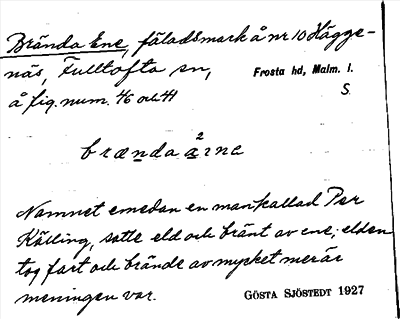 Brända Ene, fäladsmark å nr 10 Hägge-
näs, Fulltofta sn,
Frosta hd, Malm. l.
å fig. num. 46 och 41
S.
brænda a²rnə
Namnet emedan en man kallad Per
Källing, satte eld och bränt av ene; elden
tog fart och brände av mycket mer är
meningen var.
GÖSTA SJÖSTEDT 1927